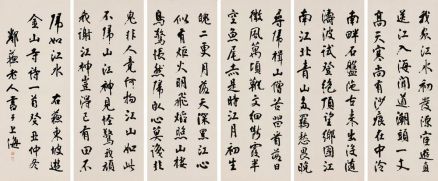 我家江水初發源宦遊直
送江入海聞道潮頭一丈
高天寒尚有沙痕在中泠
南畔石盤陀古來出沒隨
濤波試登絕頂望鄉國江
南江北青山多羈愁畏晚
尋歸楫山僧苦留看落日
微風萬頃靴文細斷霞半
空魚尾赤是時江月初生
魄二更月落天深黑江心
似有炬火明飛焰照山棲
鳥驚悵然歸臥心莫識非
鬼非人竟何物江山如此
不歸山江神見怪驚我頑
我謝江神豈得已有田不
歸如江水 右蘇東坡遊
金山寺詩一首癸丑仲冬
鄭蘇老人書于上海